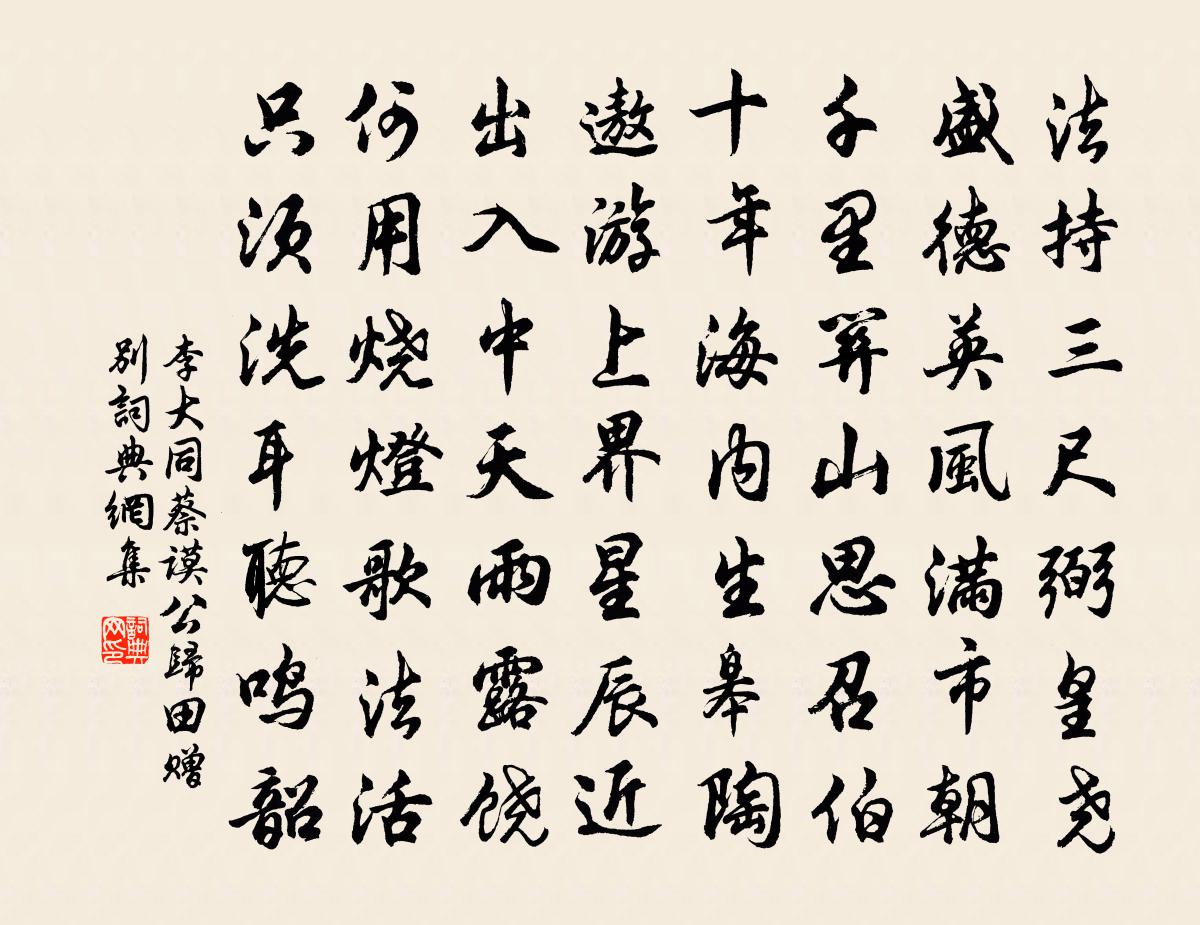 法持三尺弼皇尧
盛德英風满市朝
千里関山思召伯
十年海内生皋陶
遨游上界星辰近
出入中天雨露饶
何用烧燈歌法活
只须洗耳聽鸣韶
李大同蔡谟公歸田赠
别詞典網集
詞典
网印